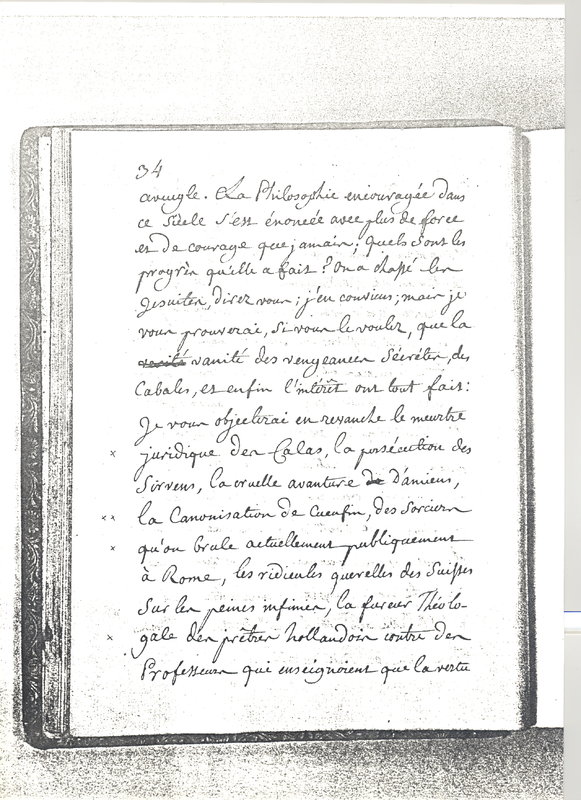 34
aveugle. La Philosophie encouragée dans
ce Siècle s'est énoncée avec plus de force
et de courage que jamais; quels sont les
progrès qu'elle a fait? On a chassé les
Jesuites, direz vous; j'en conviens; mais je
vous prouverai, si vous le voulez, que la
vanité des vengeances sécrètes, des
Cabales, et enfin l'intérêt ont tout fait:
Je vous objecterai en revanche le meurtre
x juridique des Calas, la persécution des
Sirvens, la cruelle avanture D'amiens,
x x la Canonisation de Cucufin, des Sorciers
x qu'on brule actuellement publiquement
à Rome, les ridicules querelles des Suisses
sur les peines infinies, la fureur Théolo-
x gale des prêtres hollandois contre des
Professeurs qui enseignoient que la vertu